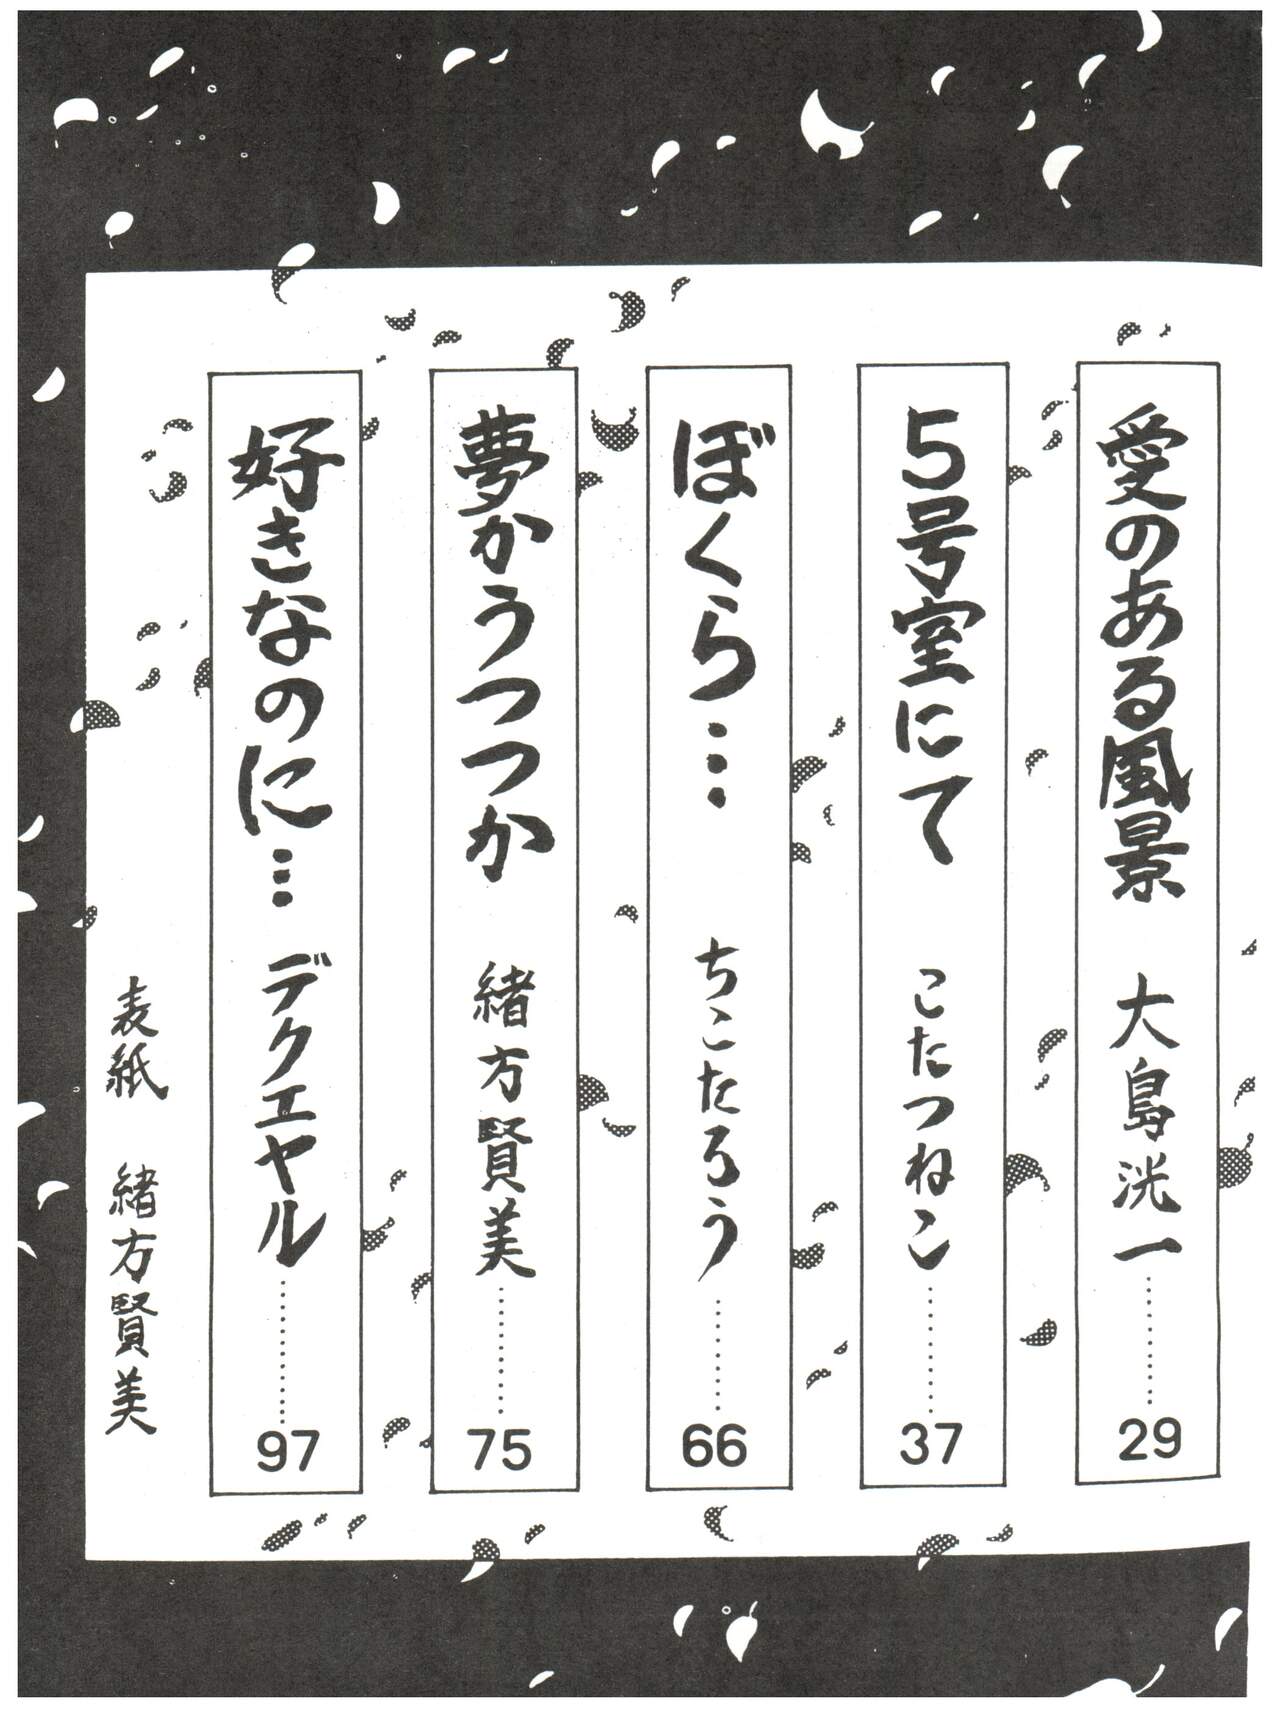 愛のある風景 大島洸一 ………… 29
5号室にて こたつねこ ………… 37
ぼくら… ちこたろう ………… 66
夢かうつつか 緒方賢美 ………… 75
好きなのに… デクエヤル ………… 97
表紙 緒方賢美